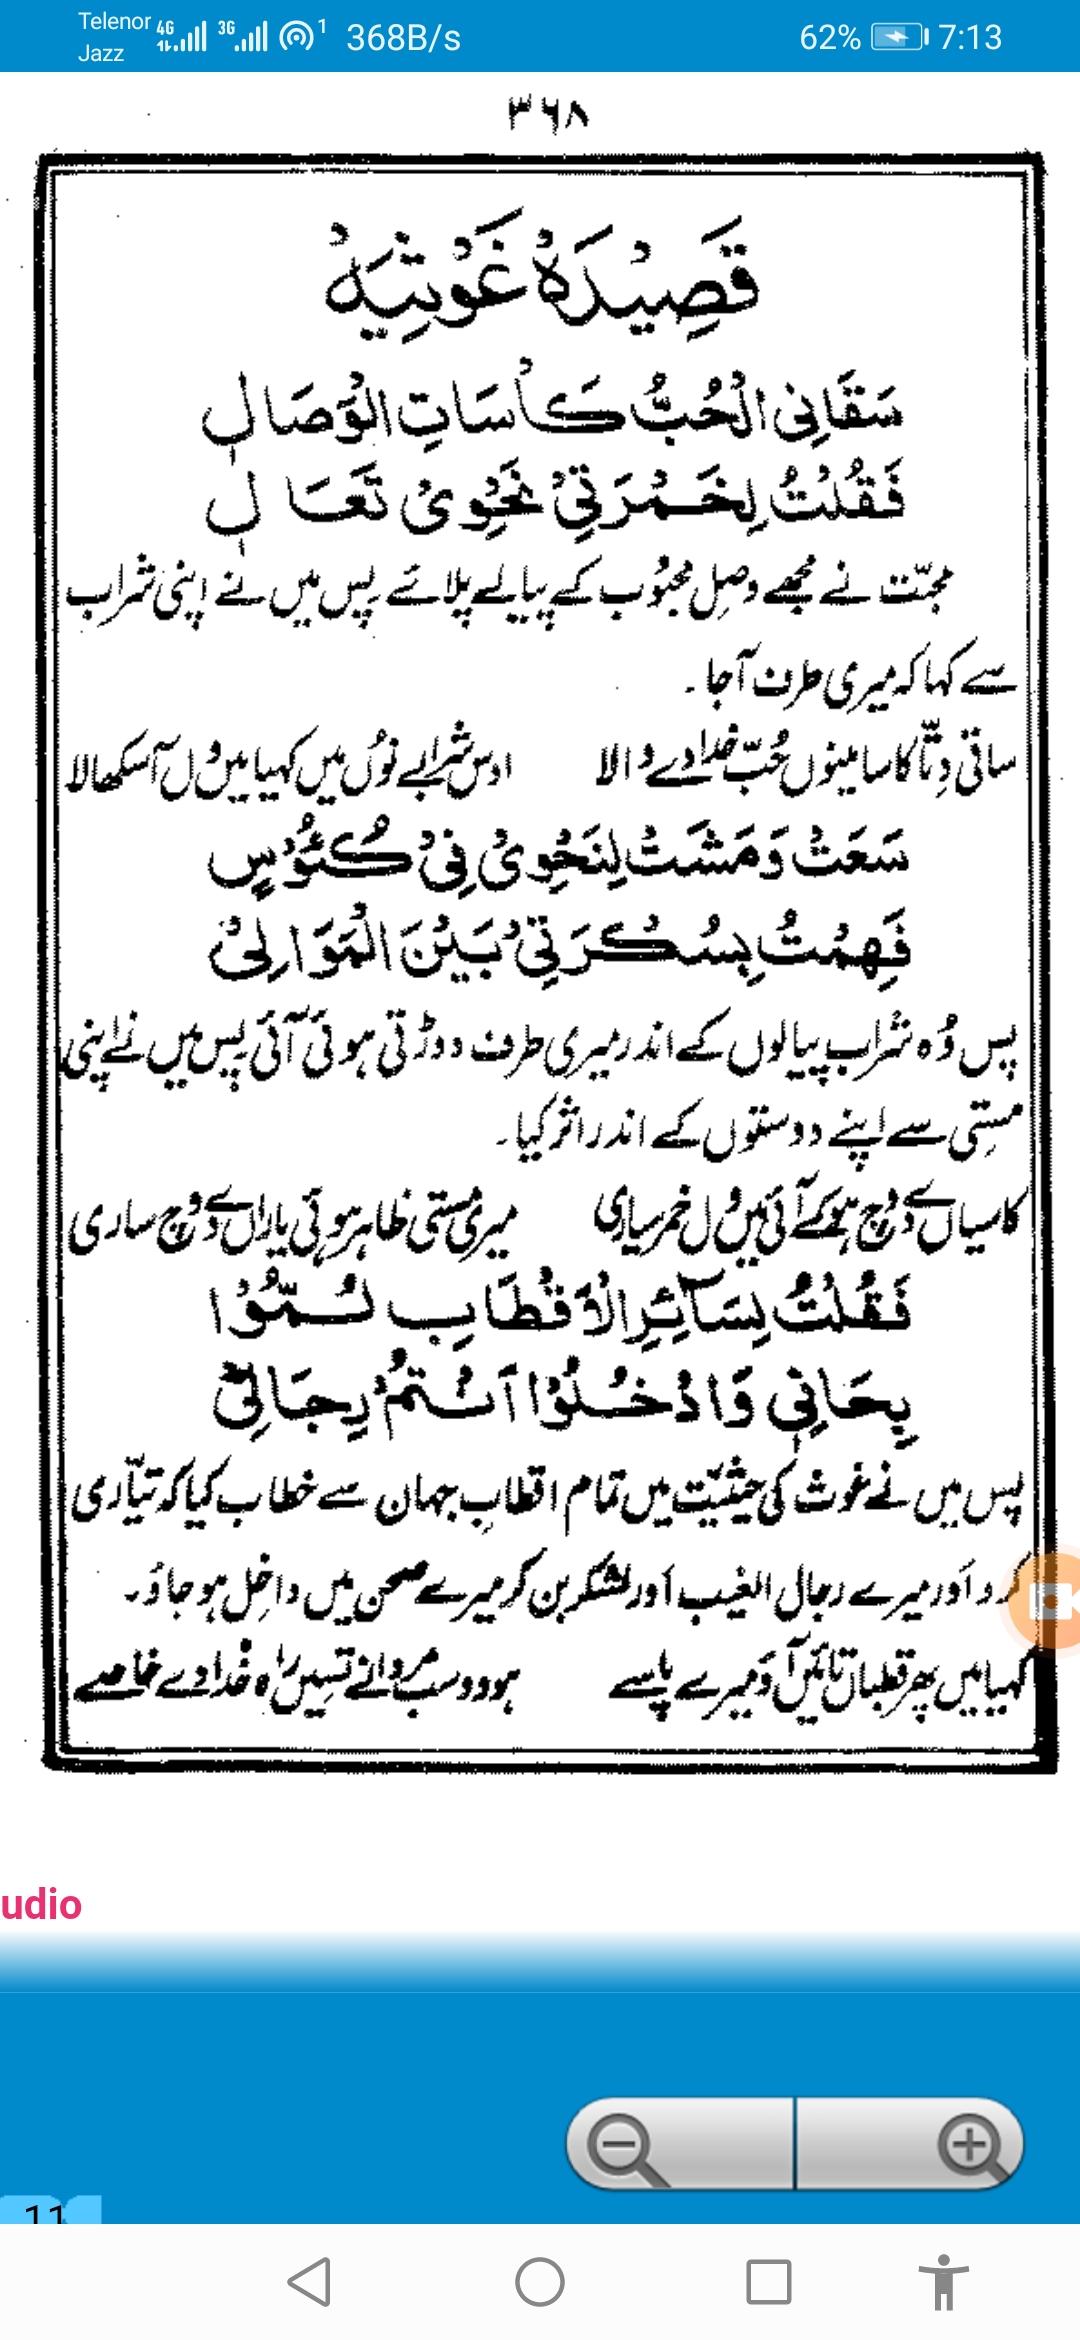 Telenor 4G 3G 1 368B/s 62% 7:13
Jazz
۳۶۸
قَصِيْدَهْ غَوْثِيَهْ
سَقَانِی الْحُبُّ كَأْسَاتِ الْوَصَالِ
فَقُلْتُ لِخَمْرَتِیْ نَحْوِیْ تَعَالِ
محبّت نے مجھے وصل محبُوب کے پیالے پلائے پس میں نے اپنی شراب
سے کہا کہ میری طرف آجا۔
ساقی دِتّا کاسا مینوں حُبّ خدا دے والا اوس شرابے نوُں میں کہیا میں ول آ سکھالا
سَعَتْ وَمَشَتْ لِنَحْوِیْ فِیْ كُئُوْسٍ
فَهِمْتُ بِسُكْرَتِیْ بَيْنَ الْمَوَالِیْ
پس وُہ شراب پیالوں کے اندر میری طرف دوڑتی ہوئی آئی پس میں نے اپنی
مستِی سے اپنے دوستوں کے اندر اثر کیا۔
کاسیاں دے وچ ہو کے آئی میں ول خمر پیاری میری مستی ظاہر ہوئی یاراں دے وچ ساری
فَقُلْتُ لِسَآئِرِ الْاَقْطَابِ لُمُّوْا
بِحَانِی وَادْخُلُوْا اَنْتُمْ رِجَالِیْ
پس میں نے غوث کی حیثیّت میں تمام اقطابِ جہان سے خطاب کیا کہ تیّاری
کرو اَور میرے رجال الغیب اَور لشکر بن کر میرے صحن میں داخِل ہو جاؤ۔
کہیا میں پھر قطباں تائیں آؤ میرے پاسے ہووو سب مردانے تسیں راہ خُدا دے خاصے
udio
11